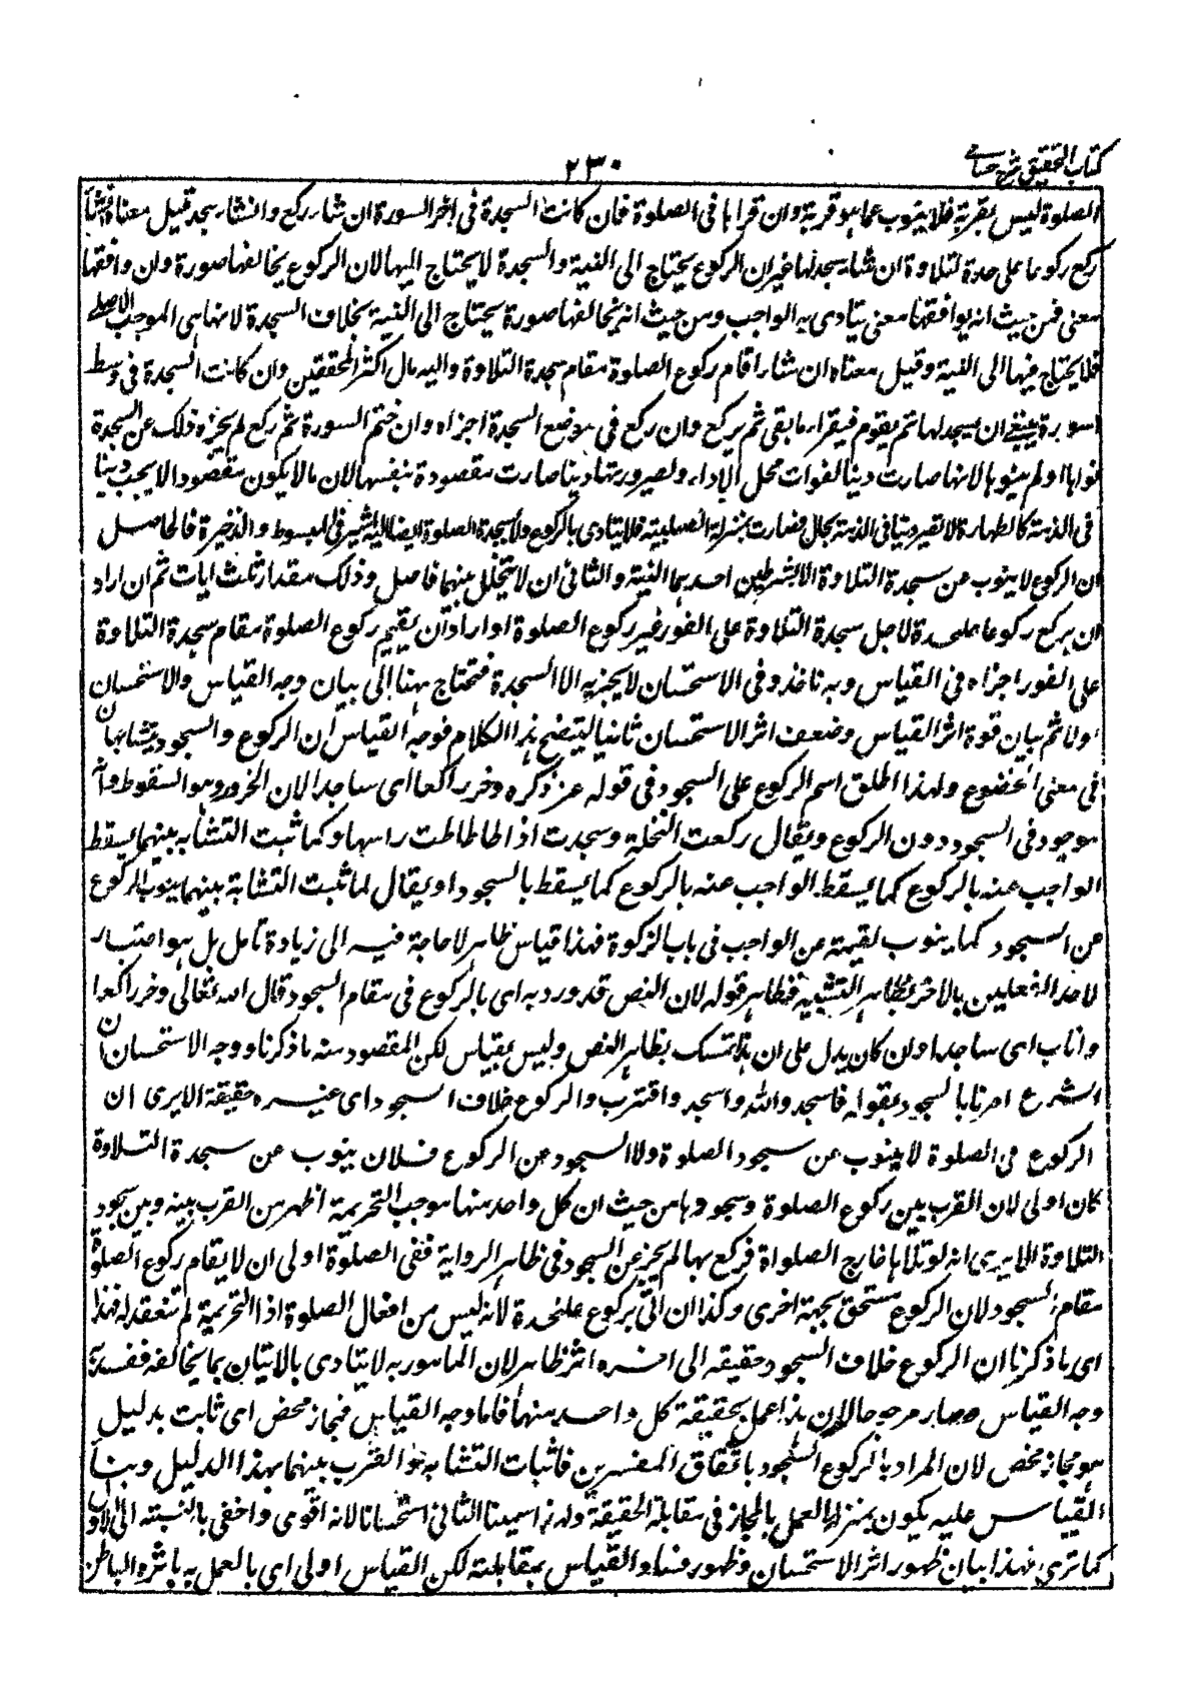 كتاب التحقيق شرح حسامي
٢٣٠
الصلوة ليس بقربة فلا ينوب عما هو قربة وان قرأها فى الصلوة فان كانت السجدة فى اخر السورة ان شاء ركع وان شاء سجد قيل معناه ان شاء
ركع ركوعا على حدة لتلاوة ان شاء سجد لها غير ان الركوع يحتاج الى النية والسجدة لا يحتاج اليها لان الركوع يخالفها صورة وان وافقها
معنى فمن حيث انه يوافقها معنى يتادى به الواجب ومن حيث انه يخالفها صورة يحتاج الى النية بخلاف السجدة لانها هى الموجب الاصلى
فلا يحتاج فيها الى النية وقيل معناه ان شاء اقام ركوع الصلوة مقام سجدة التلاوة واليه مال اكثر المحققين وان كانت السجدة فى وسط
السورة ينبغى ان يسجد لها ثم يقوم فيقراء ما بقى ثم يركع وان ركع فى موضع السجدة اجزاه وان ختم السورة ثم ركع لم يجزه ذلك عن السجدة
نواها او لم ينوها لانها صارت دينا لفوات محل الاداء ولصيرورتها دينا صارت مقصودة بنفسها لان ما لا يكون مقصودا لا يجب دينا
فى الذمة كالطهارة لا تصير دينا فى الذمة بحال فصارت بمنزلة الصلبية فلا يتادى بالركوع ولا بسجدة الصلوة ايضا اليه اشير فى المبسوط والذخيرة فالحاصل
ان الركوع لا ينوب عن سجدة التلاوة الا بشرطين احدهما النية والثانى ان لا يتخلل بينهما فاصل وذلك مقدار ثلث ايات ثم ان اراد
ان يركع ركوعا عليحدة لاجل سجدة التلاوة على الفور غير ركوع الصلوة او اراد ان يقيم ركوع الصلوة مقام سجدة التلاوة
على الفور اجزاه فى القياس وبه ناخذ وفى الاستحسان لا يجزيه الا السجدة فتحتاج ههنا الى بيان وجه القياس والاستحسان
اولا ثم بيان قوة اثر القياس وضعف اثر الاستحسان ثانيا ليتضح هذا الكلام فوجه القياس ان الركوع والسجود يتشابهان
فى معنى الخضوع ولهذا اطلق اسم الركوع على السجود فى قوله عز ذكره وخر راكعا اى ساجدا لان الخرور وهو السقوط
موجود فى السجود دون الركوع ويقال ركعت النخلة وسجدت اذا طاطات راسها وكما ثبت التشابه بينهما يسقط
الواجب عنه بالركوع كما يسقط الواجب عنه بالركوع كما يسقط بالسجود او يقال لما ثبت التشابة بينهما ينوب الركوع
عن السجود كما ينوب القيمة عن الواجب فى باب الزكوة فهذا قياس ظاهر لا حاجة فيه الى زيادة تامل بل هو اعتبار
لاحد الفعلين بالاخر بظاهر التشبيه فظاهر قوله لان النص قد ورد به اى بالركوع فى مقام السجود قال الله تعالى وخر راكعا
واناب اى ساجدا وان كان يدل على ان هذا تمسك بظاهر النص وليس بقياس لكن المقصود منه ما ذكرنا ووجه الاستحسان ان
الشرع امرنا بالسجود بقوله فاسجدوا لله واسجد واقترب والركوع خلاف السجود اى غيره حقيقة الا يرى ان
الركوع فى الصلوة لا ينوب عن سجود الصلوة ولا السجود عن الركوع فلان ينوب عن سجدة التلاوة
كان اولى لان القرب بين ركوع الصلوة وسجودها من حيث ان كل واحد منهما موجب التحريمة اظهر من القرب بينه وبين سجود
التلاوة الا يرى انه لو تلاها خارج الصلواة فركع بها لم يجز عن السجود فى ظاهر الرواية ففى الصلوة اولى ان لا يقام ركوع الصلوة
مقام السجود لان الركوع مستحق بجهة اخرى وكذا ان اتى بركوع عليحدة لانه ليس من افعال الصلوة اذا التحريمة لم تنعقد له فهذا
اى ما ذكرنا ان الركوع خلاف السجود حقيقه الى اخره اثر ظاهر لان المامور به لا يتادى بالاتيان بما يخالفه ففسد به
وجه القياس وصار مرجوحا لان هذا عمل بحقيقة كل واحد منهما فاما وجه القياس فمجاز محض اى ثابت بدليل
هو مجاز محض لان المراد بالركوع السجود باتفاق المفسرين فاثبات التشابه هو القرب بينهما بهذا الدليل وبناء
القياس عليه يكون بمنزلة العمل بالمجاز فى مقابلة الحقيقة ولهذا سمينا الثانى استحسانا لانه اقوى واخفى بالنسبته الى الاول
كما ترى فهذا بيان ظهور اثر الاستحسان وظهور فساد القياس بمقابلته لكن القياس اولى اى بالعمل به باثره الباطن